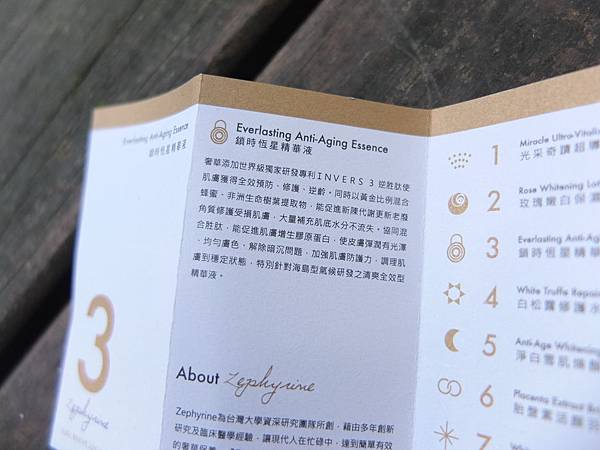 Everlasting Anti-Aging Essence
鎖時恆星精華液
3
Zephyrine
Everlasting Anti-Aging Essence
鎖時恆星精華液
奢華添加世界級獨家研發專利INVERS 3 逆胜肽使
肌膚獲得全效預防、修護、逆齡。同時以黃金比例混合
蜂蜜、非洲生命樹葉提取物，能促進新陳代謝更新老廢
角質修護受損肌膚，大量補充肌底水分不流失。協同混
合胜肽，能促進肌膚增生膠原蛋白，使皮膚彈潤有光澤
、均勻膚色、解除暗沉問題，加強肌膚防護力，調理肌
膚到穩定狀態，特別針對海島型氣候研發之清爽全效型
精華液。
About Zephyrine
Zephyrine為台灣大學資深研究團隊所創，藉由多年創新
研究及臨床醫學經驗，讓現代人在忙碌中，達到簡單有效
的奢華保養
1 Miracle Ultra-Vitali
光采奇蹟超導
2 Rose Whitening Lot
玫瑰嫩白保濕
3 Everlasting Anti-Ag
鎖時恆星精華
4 White Truffle Repair
白松露修護水
5 Anti-Age Whitening
淨白雪肌煥顏
6 Placenta Extract
胎盤素活顏
7